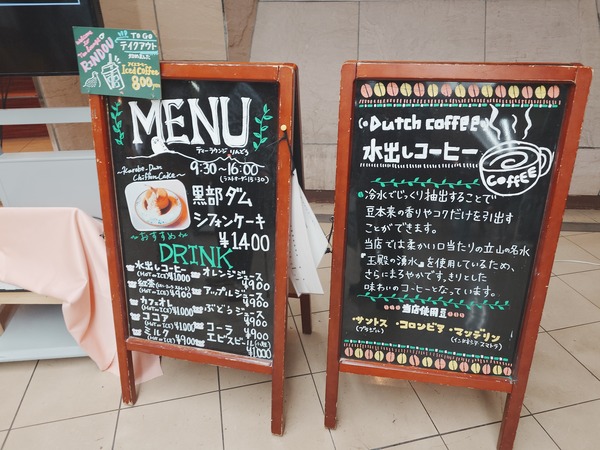 Welcome to
Tea Lounge
RINDOU
TO GO
テイクアウト
Iced Coffee
800yen
MENU
ティーラウンジ りんどう
9:30〜16:00
〜Kurobe-Dam
Chiffon Cake〜
黒部ダム
シフォンケーキ
¥1400
〜おすすめ〜
DRINK
水出しコーヒー
(HOT or ICE) ¥1000
紅茶
(HOT or ICE) ¥900
カフェオレ
(HOT or ICE) ¥1,000
ココア
(HOT or ICE) ¥1,000
ミルク
(HOT or ICE) ¥900
オレンジジュース
¥900
アップルジュース
¥900
ぶどうジュース
¥900
コーラ ¥900
エビスビール(小瓶)
¥1000
Dutch coffee
水出しコーヒー
COFFEE
冷水でじっくり抽出することで
豆本来の香りやコクだけを引出す
ことができます。
当店では柔かい口当たりの立山の名水
『玉殿の湧水』を使用しているため、
さらにまろやかです。きりとした
味あいのコーヒーとなっています。
当店使用豆
・サントス ・コロンビア ・マンデリン
(ブラジル) (インドネシア、スマトラ)